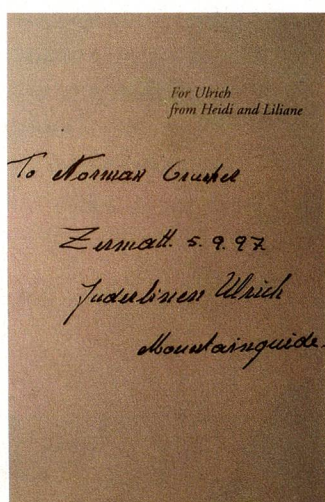 For Ulrich
from Heidi and Liliane
To Norman Croucher
Zermatt. 5. 9. 97
Inderbinen Ulrich
Mountainguide.